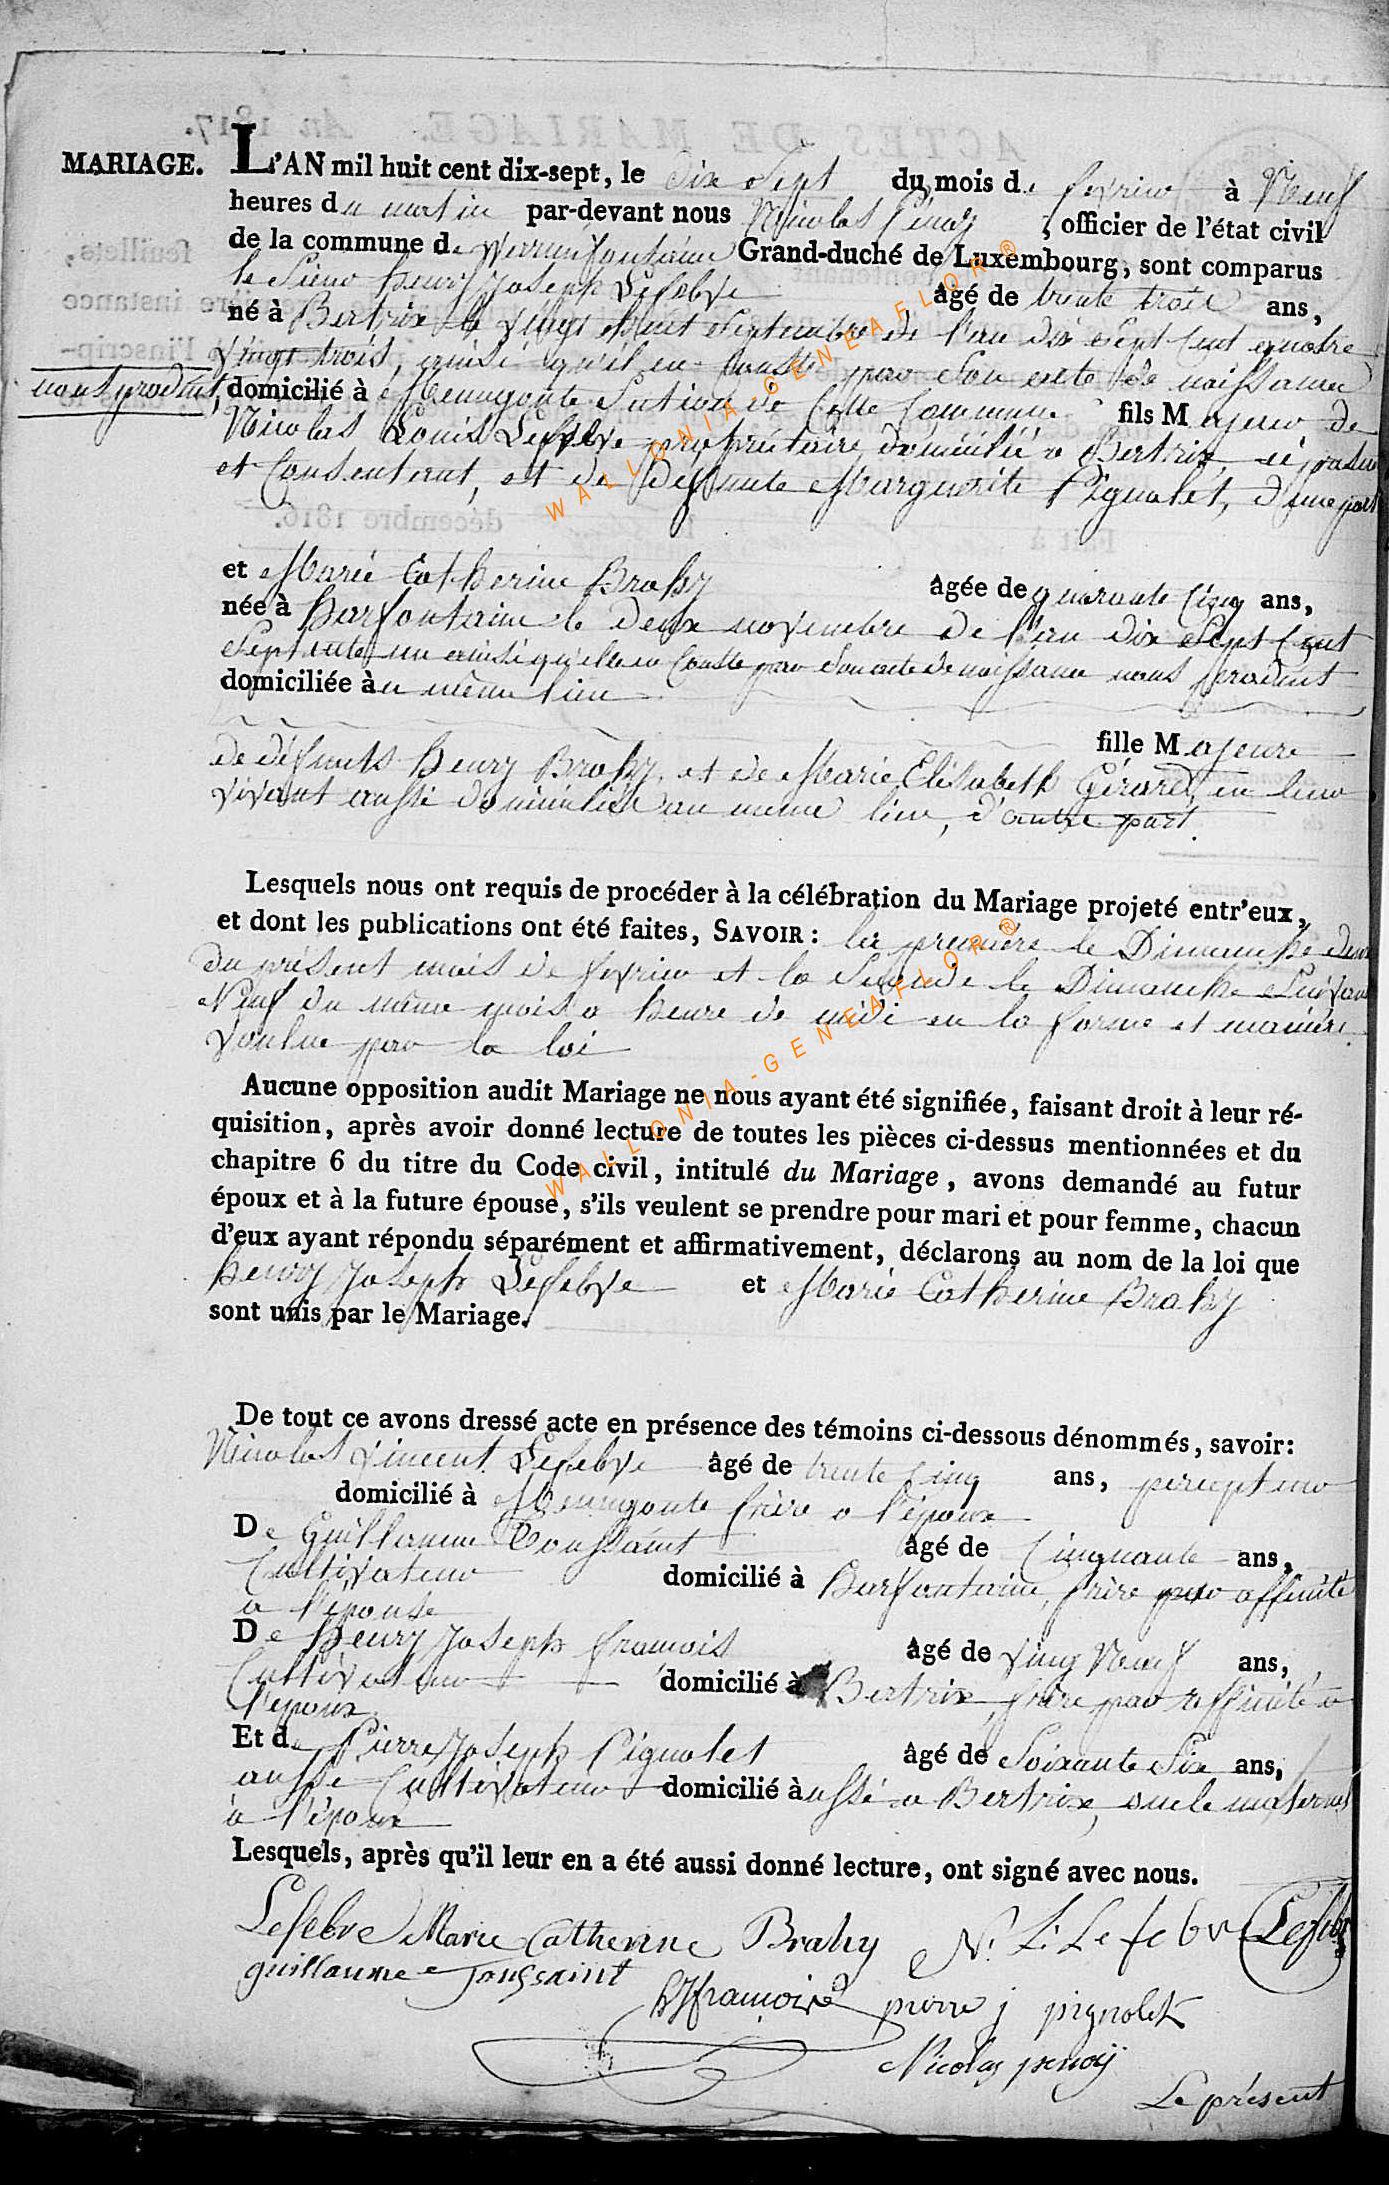 MARIAGE. L'AN mil huit cent dix-sept, le dix Sept du mois de fevrier à Neuf
heures du matin par-devant nous Nicolas Penoy, officier de l'état civil
de la commune de Grand-duché de Luxembourg, sont comparus
le Sieur henry Joseph Lefebve âgé de trente trois ans,
né à Bertrix le vingt huit Septembre de l'an dix Sept Cent quatre
vingt trois, ainsi qu'il en Conste par Son acte de naissance
nous produit, domicilié à Menugoute Section de Cette Commune fils Majeur de
Nicolas Louis Lefebve propriétaire, domicilié a Bertrix, ci présent
et Consentant, et de défunte Marguerite Pignolet, d'une part
et Marie Catherine Brahy âgée de quarante Cinq ans,
née à harfontaine le deux novembre de l'an dix Sept Cent
Septante un ainsi qu'elle en Conste par Son acte de naissance nous produit
domiciliée à u même lieu
fille Majeure
de défunts henry Brahy et de Marie Elisabeth Gérard, en leur
vivant aussi domiciliés au meme lieu, d'autre part.
Lesquels nous ont requis de procéder à la célébration du Mariage projeté entr'eux,
et dont les publications ont été faites, SAVOIR: la première le Dimanche deux
du présent mois de fevrier et la Seconde le Dimanche Suivant
Neuf du même mois a heure de midi en la forme et manière
voulue par la loi
Aucune opposition audit Mariage ne nous ayant été signifiée, faisant droit à leur ré-
quisition, après avoir donné lecture de toutes les pièces ci-dessus mentionnées et du
chapitre 6 du titre du Code civil, intitulé du Mariage, avons demandé au futur
époux et à la future épouse, s'ils veulent se prendre pour mari et pour femme, chacun
d'eux ayant répondu séparément et affirmativement, déclarons au nom de la loi que
henry Joseph Lefebve et Marie Catherine Brahy
sont unis par le Mariage.
De tout ce avons dressé acte en présence des témoins ci-dessous dénommés, savoir:
Nicolas Vincent Lefebve âgé de trente Cinq ans, percepteur
domicilié à Menugoute frère a l'époux
De Guillaume Toussaint âgé de Cinquante ans,
Cultivateur domicilié à harfontaine, frère par affinité
a l'épouse
De henry Joseph françois âgé de Vingt Neuf ans,
Cultivateur domicilié à Bertrix, frère par affinité a
l'époux
Et de Pierre Joseph Pignolet âgé de Soixante Six ans,
aussi Cultivateur domicilié à ussi a Bertrix, oncle maternel
à l'époux
Lesquels, après qu'il leur en a été aussi donné lecture, ont signé avec nous.
Lefebve Marie Catherine Brahy N. L. Lefebve Lefebve
guillaume Toussaint
hJfrancois pierre j pignolet
Nicolas penoÿ
Le présent
WALLONIA-GENEAFLOR®
WALLONIA-GENEAFLOR®